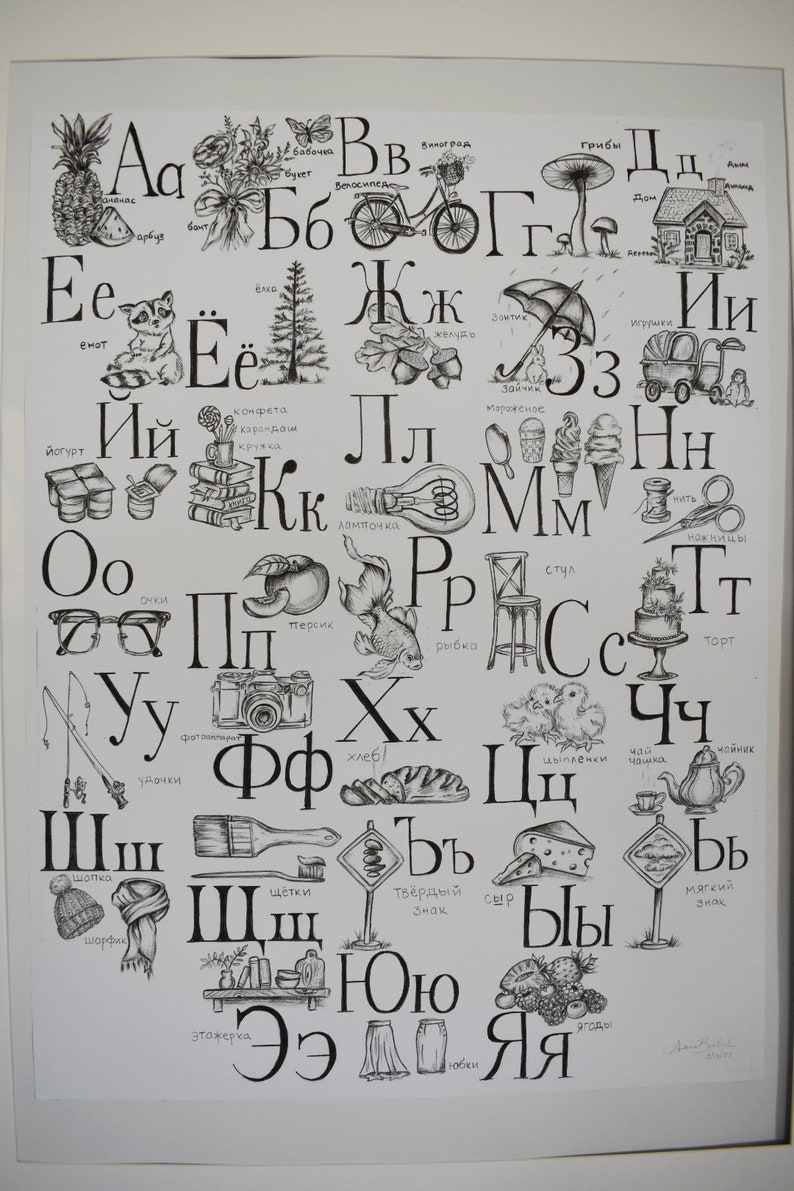 Аа
ананас
арбуз
бабочка
букет
бант
Бб
Вв
виноград
велосипед
грибы
Гг
Дд
дым
дом
деревья
Ее
енот
ёлка
Ёё
Жж
желудь
зонтик
зайчик
Зз
Ии
игрушки
Йй
йогурт
конфета
карандаш
кружка
книга
Кк
Лл
лампочка
мороженое
Мм
Нн
нить
ножницы
Оо
очки
персик
Пп
Рр
рыбка
стул
Сс
Тт
торт
Уу
удочки
фотоаппарат
Фф
Хх
хлеб
цыпленки
Цц
Чч
чай
чашка
чайник
Шш
шапка
шарфик
щётки
Щщ
Ъъ
твёрдый
знак
сыр
Ыы
Ьь
мягкий
знак
этажерка
Ээ
Юю
юбки
Яя
ягоды